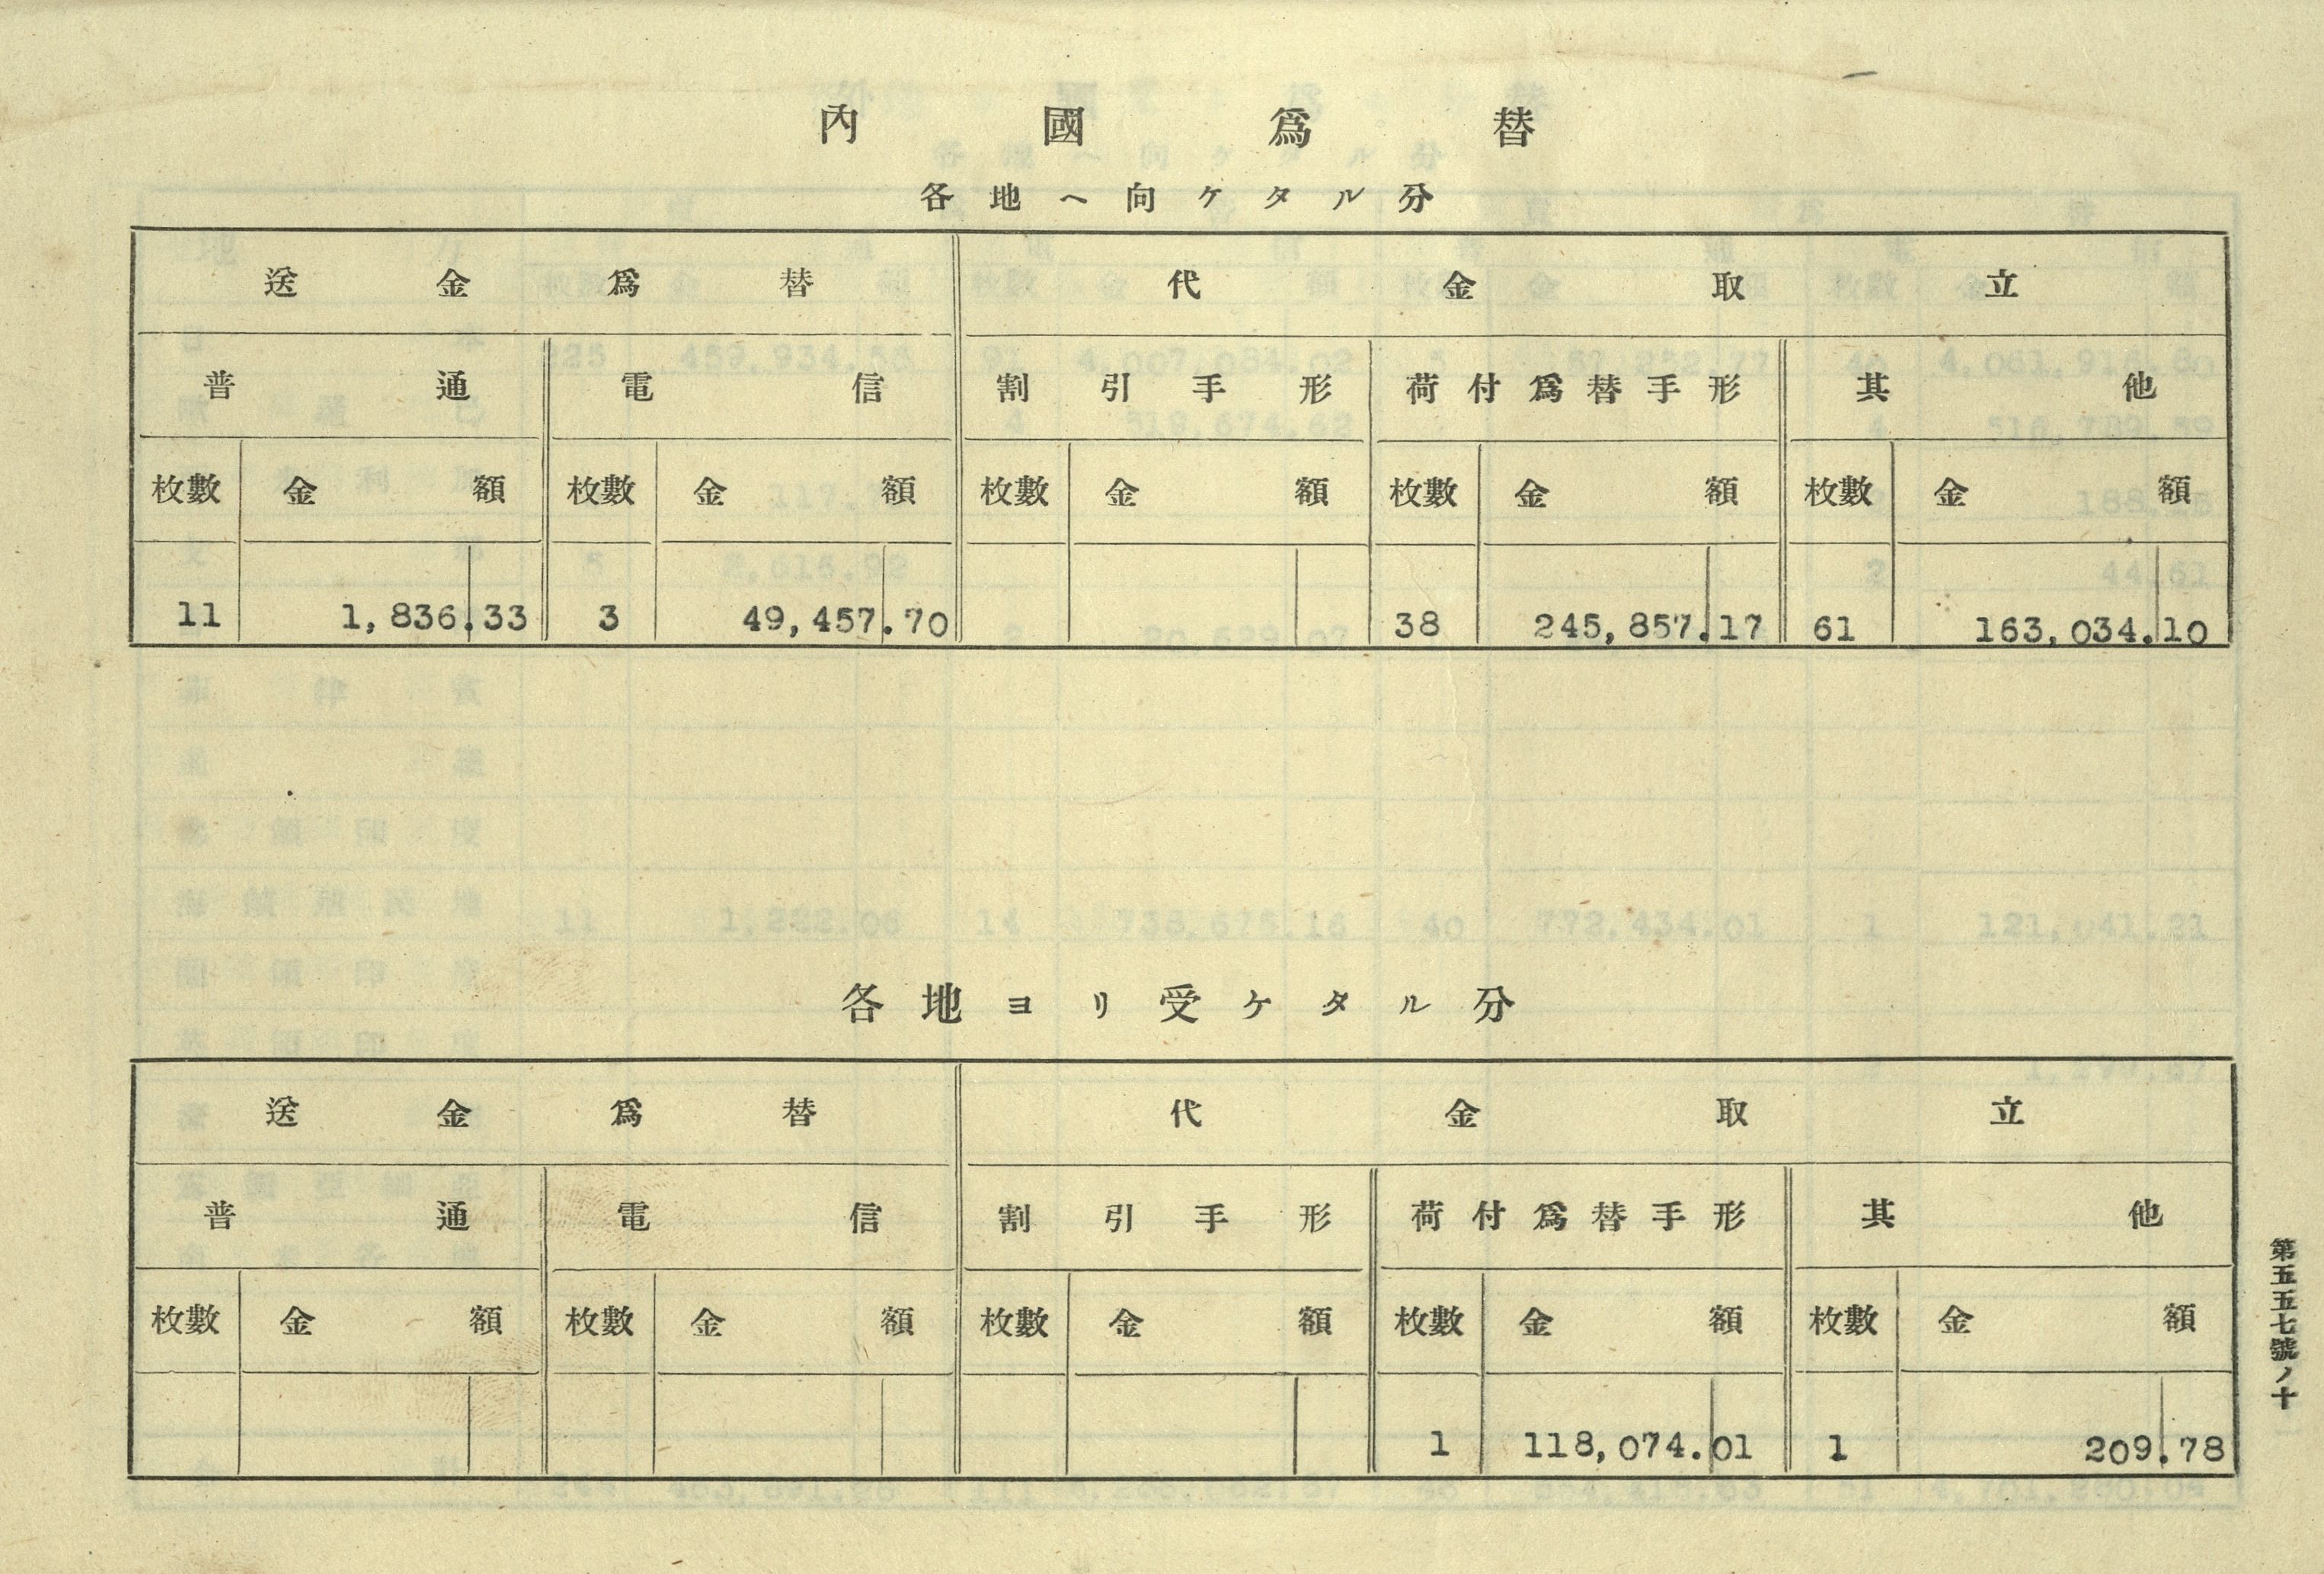 內國爲替
各地ヘ向ケタル分
送金爲替 代金取立
普通 電信 割引手形 荷付爲替手形 其他
枚數 金額 枚數 金額 枚數 金額 枚數 金額 枚數 金額
11 1,836.33 3 49,457.70 38 245,857.17 61 163,034.10
各地ヨリ受ケタル分
送金爲替 代金取立
普通 電信 割引手形 荷付爲替手形 其他
枚數 金額 枚數 金額 枚數 金額 枚數 金額 枚數 金額
1 118,074.01 1 209.78
第五五七號ノ十